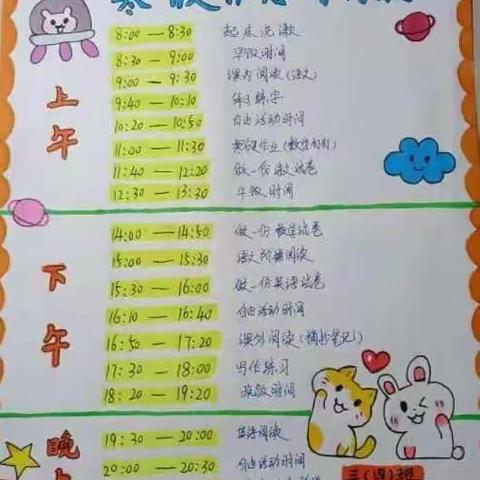 8:00 — 8:30 起床洗漱
8:30 — 9:00 早饭时间
9:00 — 9:30 课内阅读(语文)
9:40 — 10:10 练字
10:20 — 10:50 自由活动时间
11:00 — 11:30 寒假作业
11:40 — 12:20 做一份语文试卷
12:30 — 13:30 午饭时间
上午
14:00 — 14:50 做一份数学试卷
15:00 — 15:30 语文阅读
15:30 — 16:00 做一份英语试卷
16:10 — 16:40 自由活动时间
16:50 — 17:20 课外阅读(摘抄笔记)
17:30 — 18:00 写作练习
18:20 — 19:20 晚饭时间
下午
19:30 — 20:00 英语阅读
20:00 — 20:30 自由活动时间
晚上